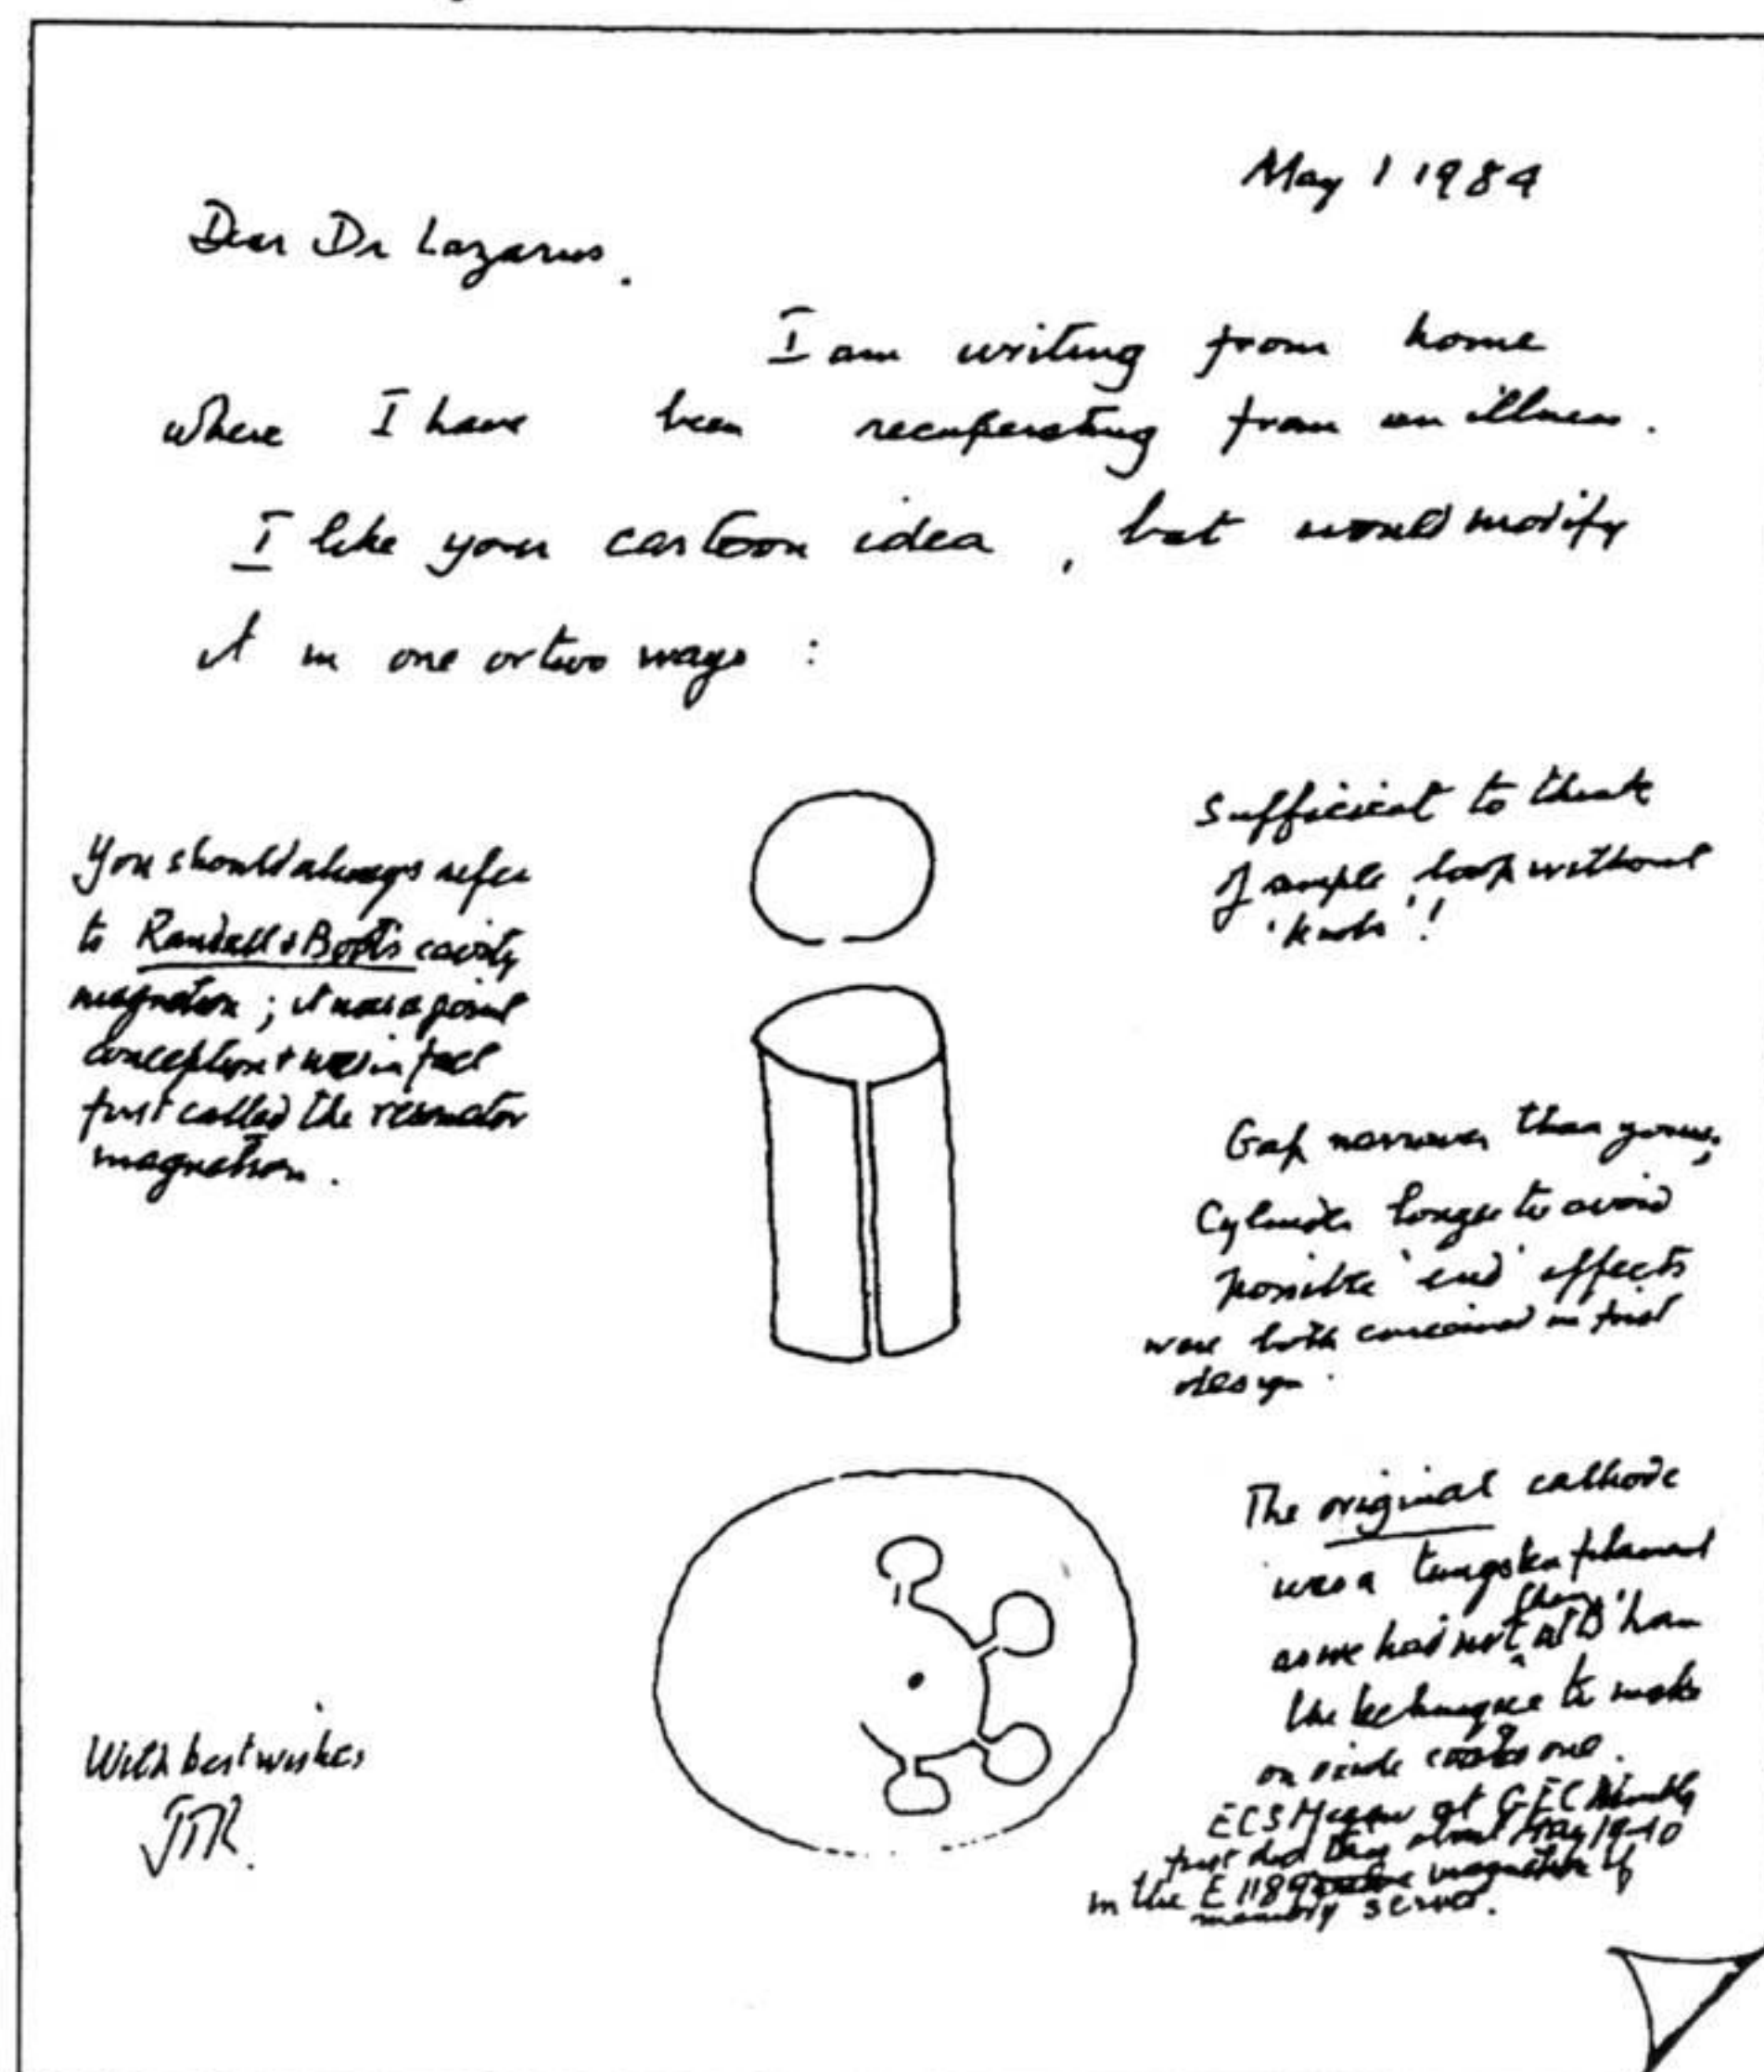 May 1 1984
Dear Dr Lazarus.
I am writing from home
where I have been recuperating from an illness.
I like your cartoon idea, but would modify
it in one or two ways :
You should always refer
to Randall & Boot's cavity
magnetron ; it was a joint
conception & was in fact
first called the resonator
magnetron.
Sufficient to think
of simple loop without
'knobs'!
Gap narrower than yours;
Cylinder longer to avoid
possible 'end' effects
were both conceived in first
design.
The original cathode
was a tungsten filament
as we had not then at B'ham
the technique to make
an oxide coated one.
ECS Megaw at GEC Wembley
first did this about May 1940
in the E 1189 magnetron if
memory serves.
With best wishes
JTR.